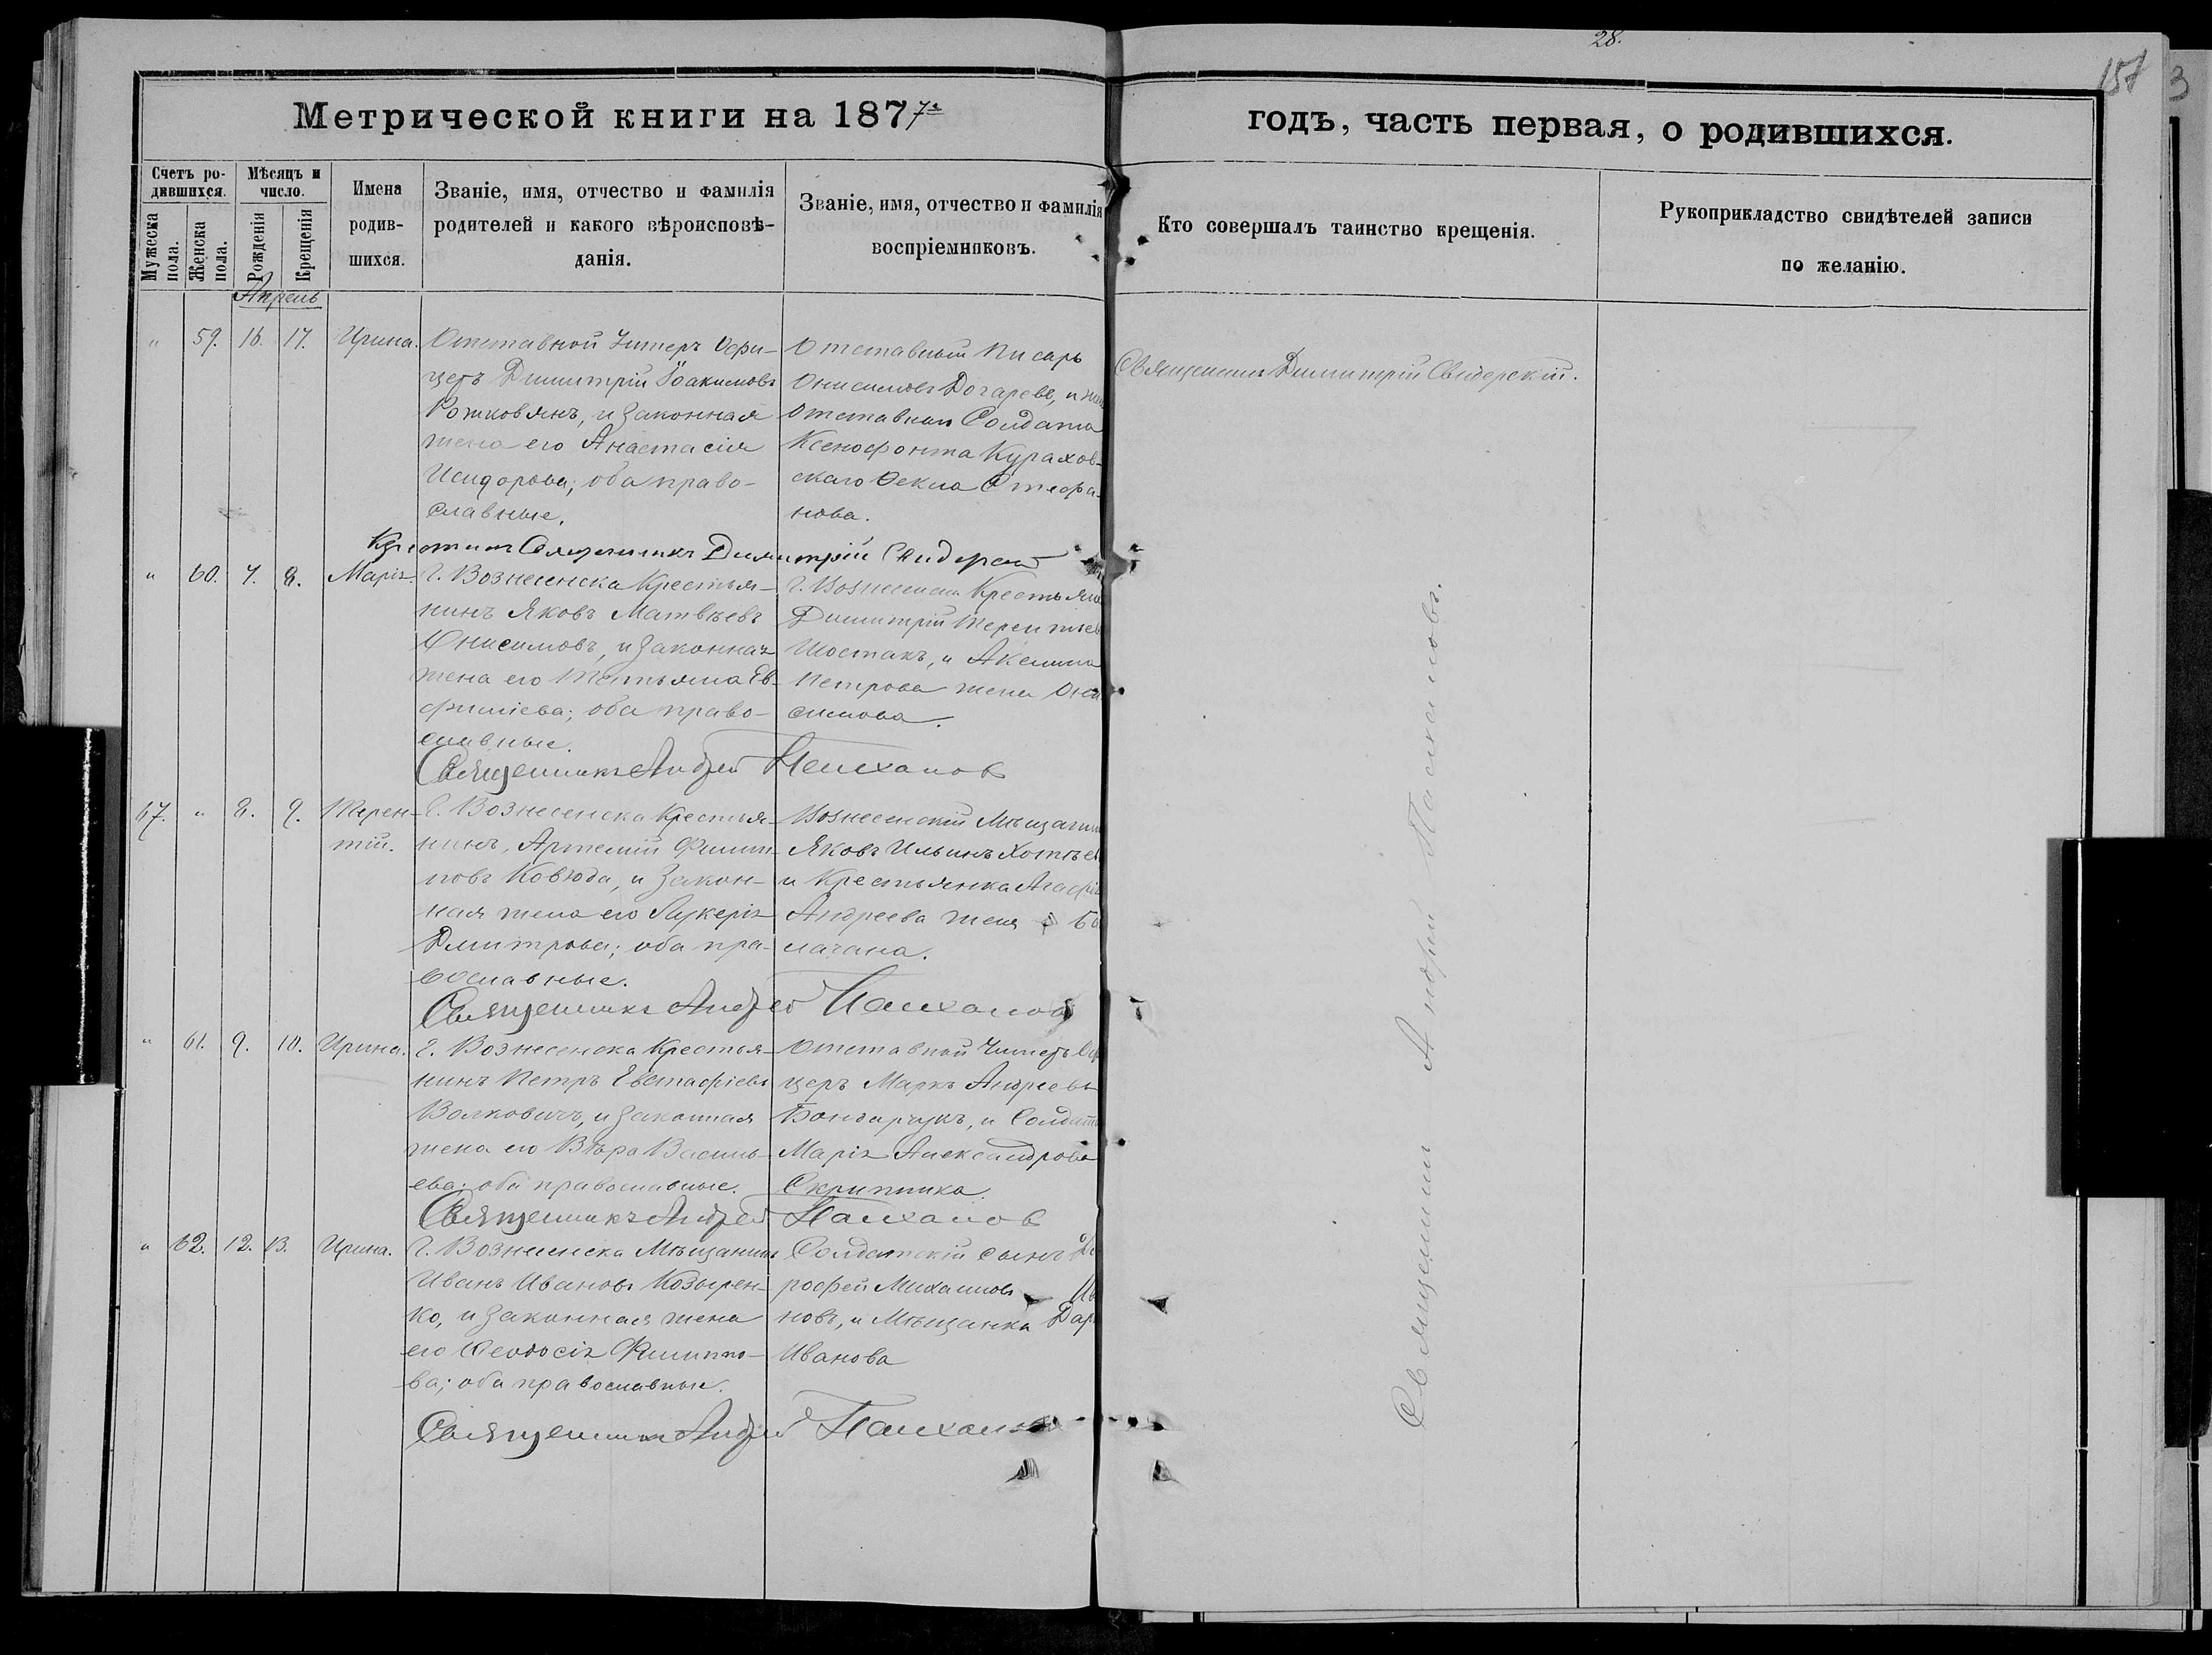 28.
157
3
Метрической книги на 1877й
годъ, часть первая, о родившихся.
Счетъ родившихся.
Мужеска пола.
Женска пола.
Мѣсяцъ и число.
Рожденія
Крещенія
Имена родив-
шихся.
Званіе, имя, отчество и фамилія
родителей и какого вѣроисповѣ-
данія.
Званіе, имя, отчество и фамилія
воспріемниковъ.
Кто совершалъ таинство крещенія.
Рукоприкладство свидѣтелей записи
по желанію.
Апрель
" 59. 16. 17. Ирина.
Отставной Унтеръ Офи-
церъ Димитрій Іоакимовъ
Рожковянъ, и законная
жена его Анастасія
Исидорова; оба право-
славные.
Отставный Писарь
Онисимовъ
Отставнаго Солдата
Ксенофонта Курахов-
скаго Ѳекла Стефа-
нова.
Священникъ Димитрій Свидерскій.
Крестилъ Священникъ Димитрій Свидерскій
" 60. 7. 8. Марія.
Г. Вознесенска Крестья-
нинъ Яковъ Матвѣевъ
Онисимовъ, и законная
жена его Татьяна Ев-
фиміева; оба право-
славные.
Г. Вознесенска Крестьян
Димитрій Терентьев
Шостакъ, и Аксинія
Петрова жена Они
симова.
Священникъ Андрей
67. " 8. 9. Терен-
тій.
Г. Вознесенска Крестья-
нинъ, Артемій Филип-
повъ Ковюда, и закон-
ная жена его Гликерія
Дмитрова; оба пра-
вославные.
Вознесенскій Мѣщанин
Яковъ Ильинъ
и Крестьянка Агафія
Андреева жена
Священникъ Андрей
" 61. 9. 10. Ирина.
Г. Вознесенска Крестья-
нинъ Петръ Евстафіевъ
Волковичъ, и законная
жена его Вѣра Василь-
ева; оба православные.
Отставной Унтеръ Оф
церъ Маркъ Андреевъ
Бондарчукъ, и Солдат
Марія Александрова
Скрипника.
Священникъ Андрей
" 62. 12. 13. Ирина.
Г. Вознесенска Мѣщанинъ
Иванъ Ивановъ Козырен-
ко, и законная жена
его Ѳеодосія Филиппо-
ва; оба православные.
Солдатскій сынъ До
рофей Михаиловъ Ива
новъ, и Мѣщанка Дар
Иванова
Священникъ Андрей
Священникъ Андрей